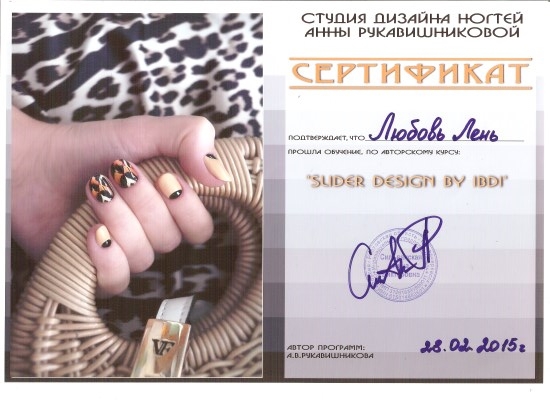 СТУДИЯ ДИЗАЙНА НОГТЕЙ
АННЫ РУКАВИШНИКОВОЙ
СЕРТИФИКАТ
ПОДТВЕРЖДАЕТ, ЧТО Любовь Лень
ПРОШЛА ОБУЧЕНИЕ, ПО АВТОРСКОМУ КУРСУ:
"SLIDER DESIGN BY IBDI"
АВТОР ПРОГРАММ:
А.В.РУКАВИШНИКОВА
28.02.2015г
VF